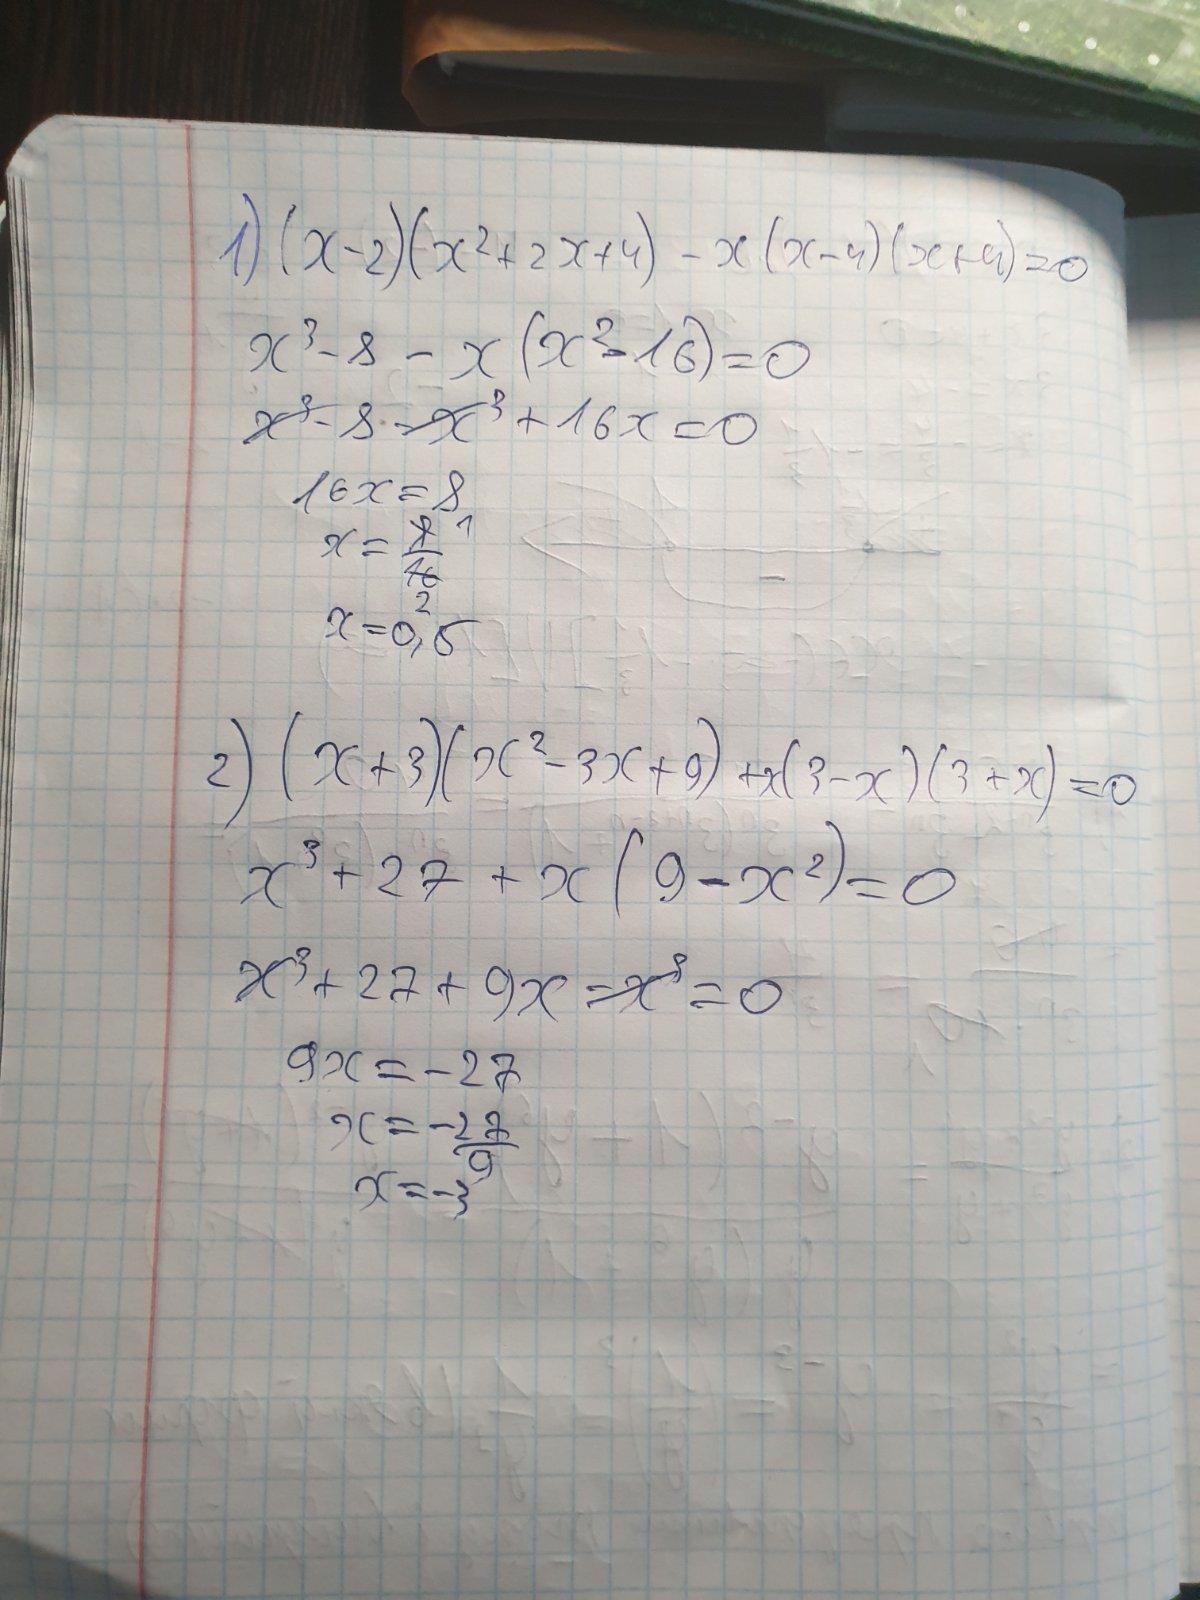 1) (x-2)(x²+2x+4) - x(x-4)(x+4)=0
x³-8 - x(x²-16)=0
x³-8-x³+16x=0
16x=8
x=8/16 1/2
x=0,5
2) (x+3)(x²-3x+9) +x(3-x)(3+x)=0
x³+27 + x(9-x²)=0
x³+27+9x-x³=0
9x=-27
x=-27/9
x=-3